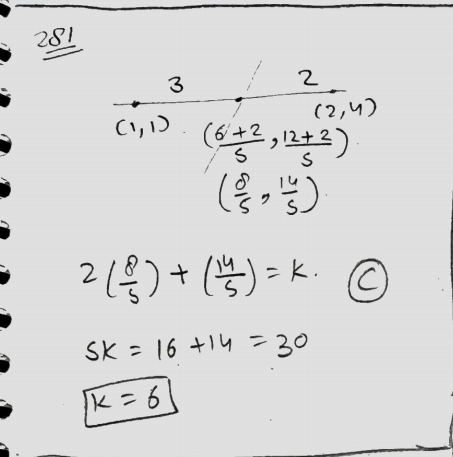 281
3 2
(1,1) (2,4)
(6+2/5, 12+2/5)
(8/5, 14/5)
2(8/5) + (14/5) = K. C
5K = 16 + 14 = 30
K = 6